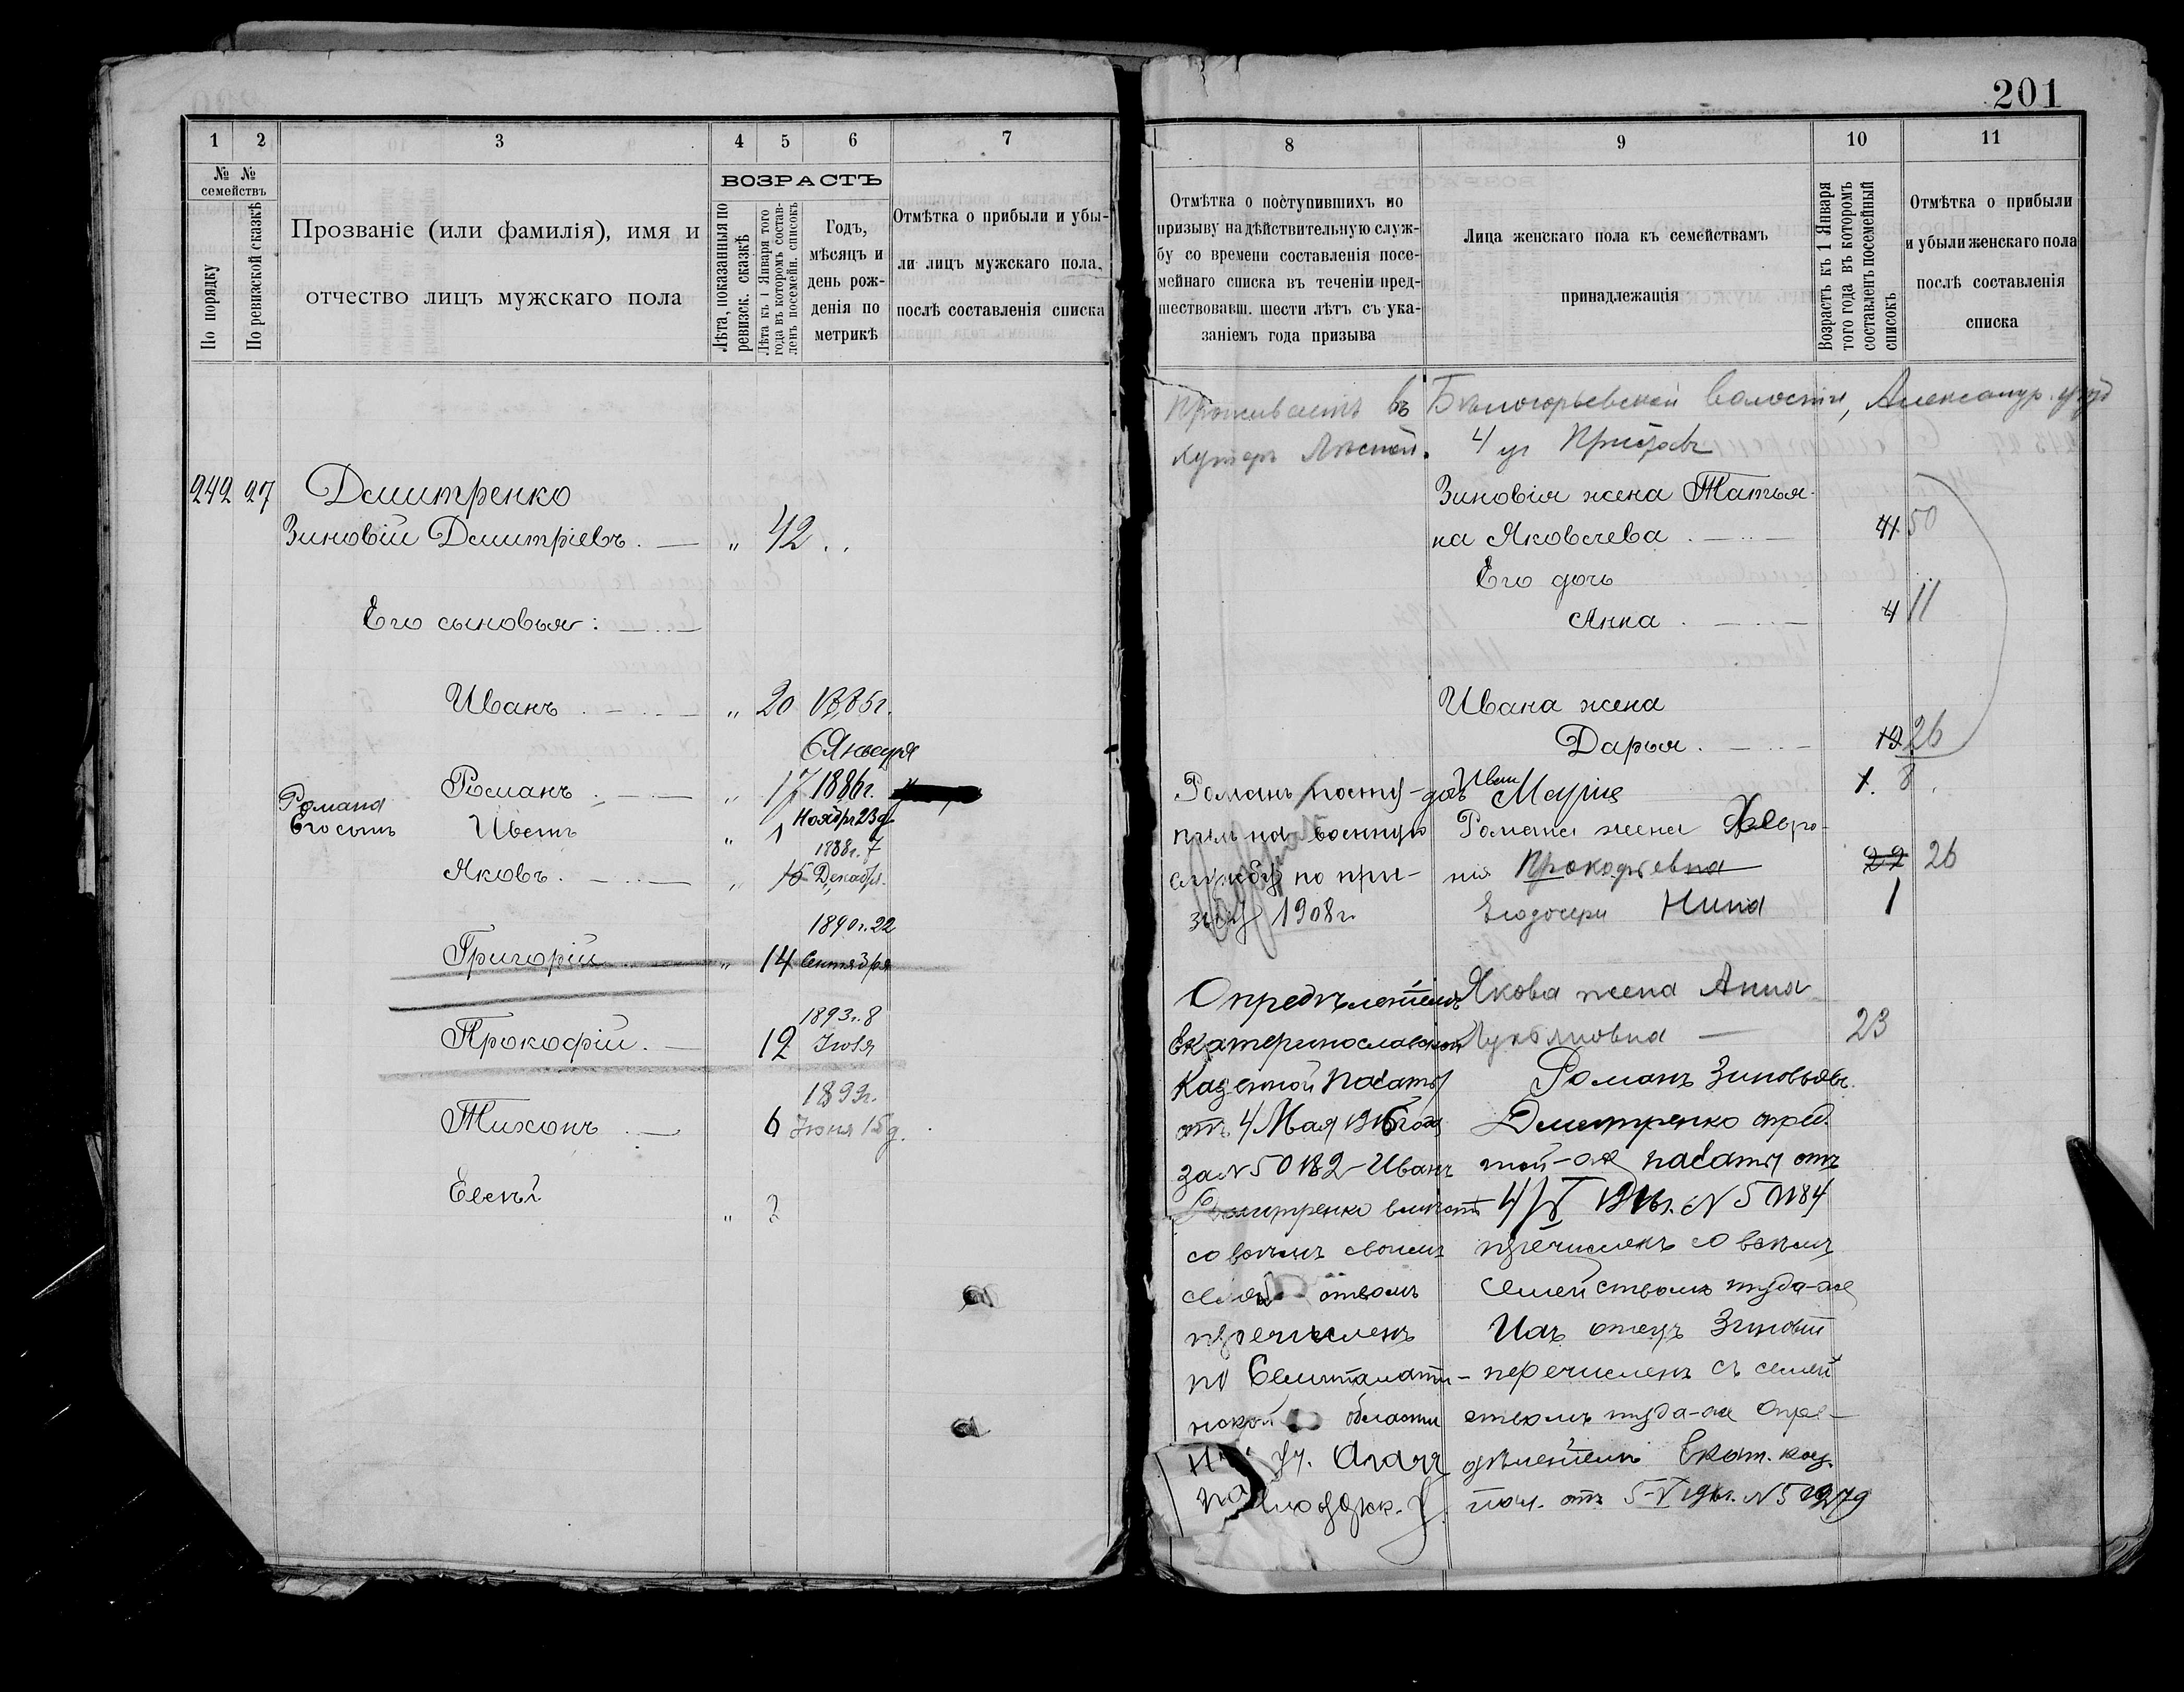 201
1 2 3 4 5 6 7
№ № семействъ
По порядку
По ревизской сказкѣ
Прозваніе (или фамилія), имя и
отчество лицъ мужскаго пола
ВОЗРАСТЪ
Лѣта, показанныя по
ревизск. сказкѣ
Лѣта къ 1 Января того
года въ которомъ состав-
ленъ посемейн. списокъ
Годъ,
мѣсяцъ и
день рож-
денія по
метрикѣ
Отмѣтка о прибыли и убы-
ли лицъ мужскаго пола,
послѣ составленія списка
242 27 Дмитренко
Зиновій Дмитріевъ. — „ 42
Его сыновья:
Иванъ „ 20
6 Января
Романъ „ 17 1886г.
Романа
Его сынъ
Ноября 23д
1
1888г. 7
Яковъ. „ 15 Декабр.
1890г. 22
Григорій „ 14 Сентября
1893г. 8
Прокофій. 12 Іюля
1899г.
Тихонъ 6 Іюня 15д.
„
8 9 10 11
Отмѣтка о поступившихъ по
призыву на дѣйствительную служ-
бу со времени составленія посе-
мейнаго списка въ теченіи пред-
шествовавш. шести лѣтъ съ ука-
заніемъ года призыва
Лица женскаго пола къ семействамъ
принадлежащія
Возрастъ къ 1 Января
того года въ которомъ
составленъ посемейный
списокъ
Отмѣтка о прибыли
и убыли женскаго пола
послѣ составленія
списка
Проживаетъ въ Бѣлогорьевской волости, Александр. уѣзд
хуторъ 4 уч
Зиновія жена Татья-
на Яковлева 41 50
Его дочь
Анна 4 11
Ивана жена
Дарья. 19 26
дочь Ивана Марія 1. 8
Романа жена Февро-
нія Прокофьевна 22 26
Его дочери Нина 1
Якова жена Анна
23
Романъ посту-
пилъ на военную
службу по при-
зыву 1908г.
Опредѣленіемъ
Екатеринославской
Казенной палаты
отъ 4 Мая 1916 года
за № 50182 – Иванъ
Дмитренко вмѣстѣ
со всѣмъ своимъ
семействомъ
перечисленъ
по Семипалатин-
ской области
Романъ Зиновьевъ
Дмитренко опред.
той-же палаты отъ
4/V 1916г. № 50184
перечисленъ со всѣмъ
семействомъ туда-же
Ихъ отецъ Зиновій
перечисленъ съ семей-
ствомъ туда-же опре-
дѣленіемъ Екат. каз.
пал. отъ 5-V 1916г.